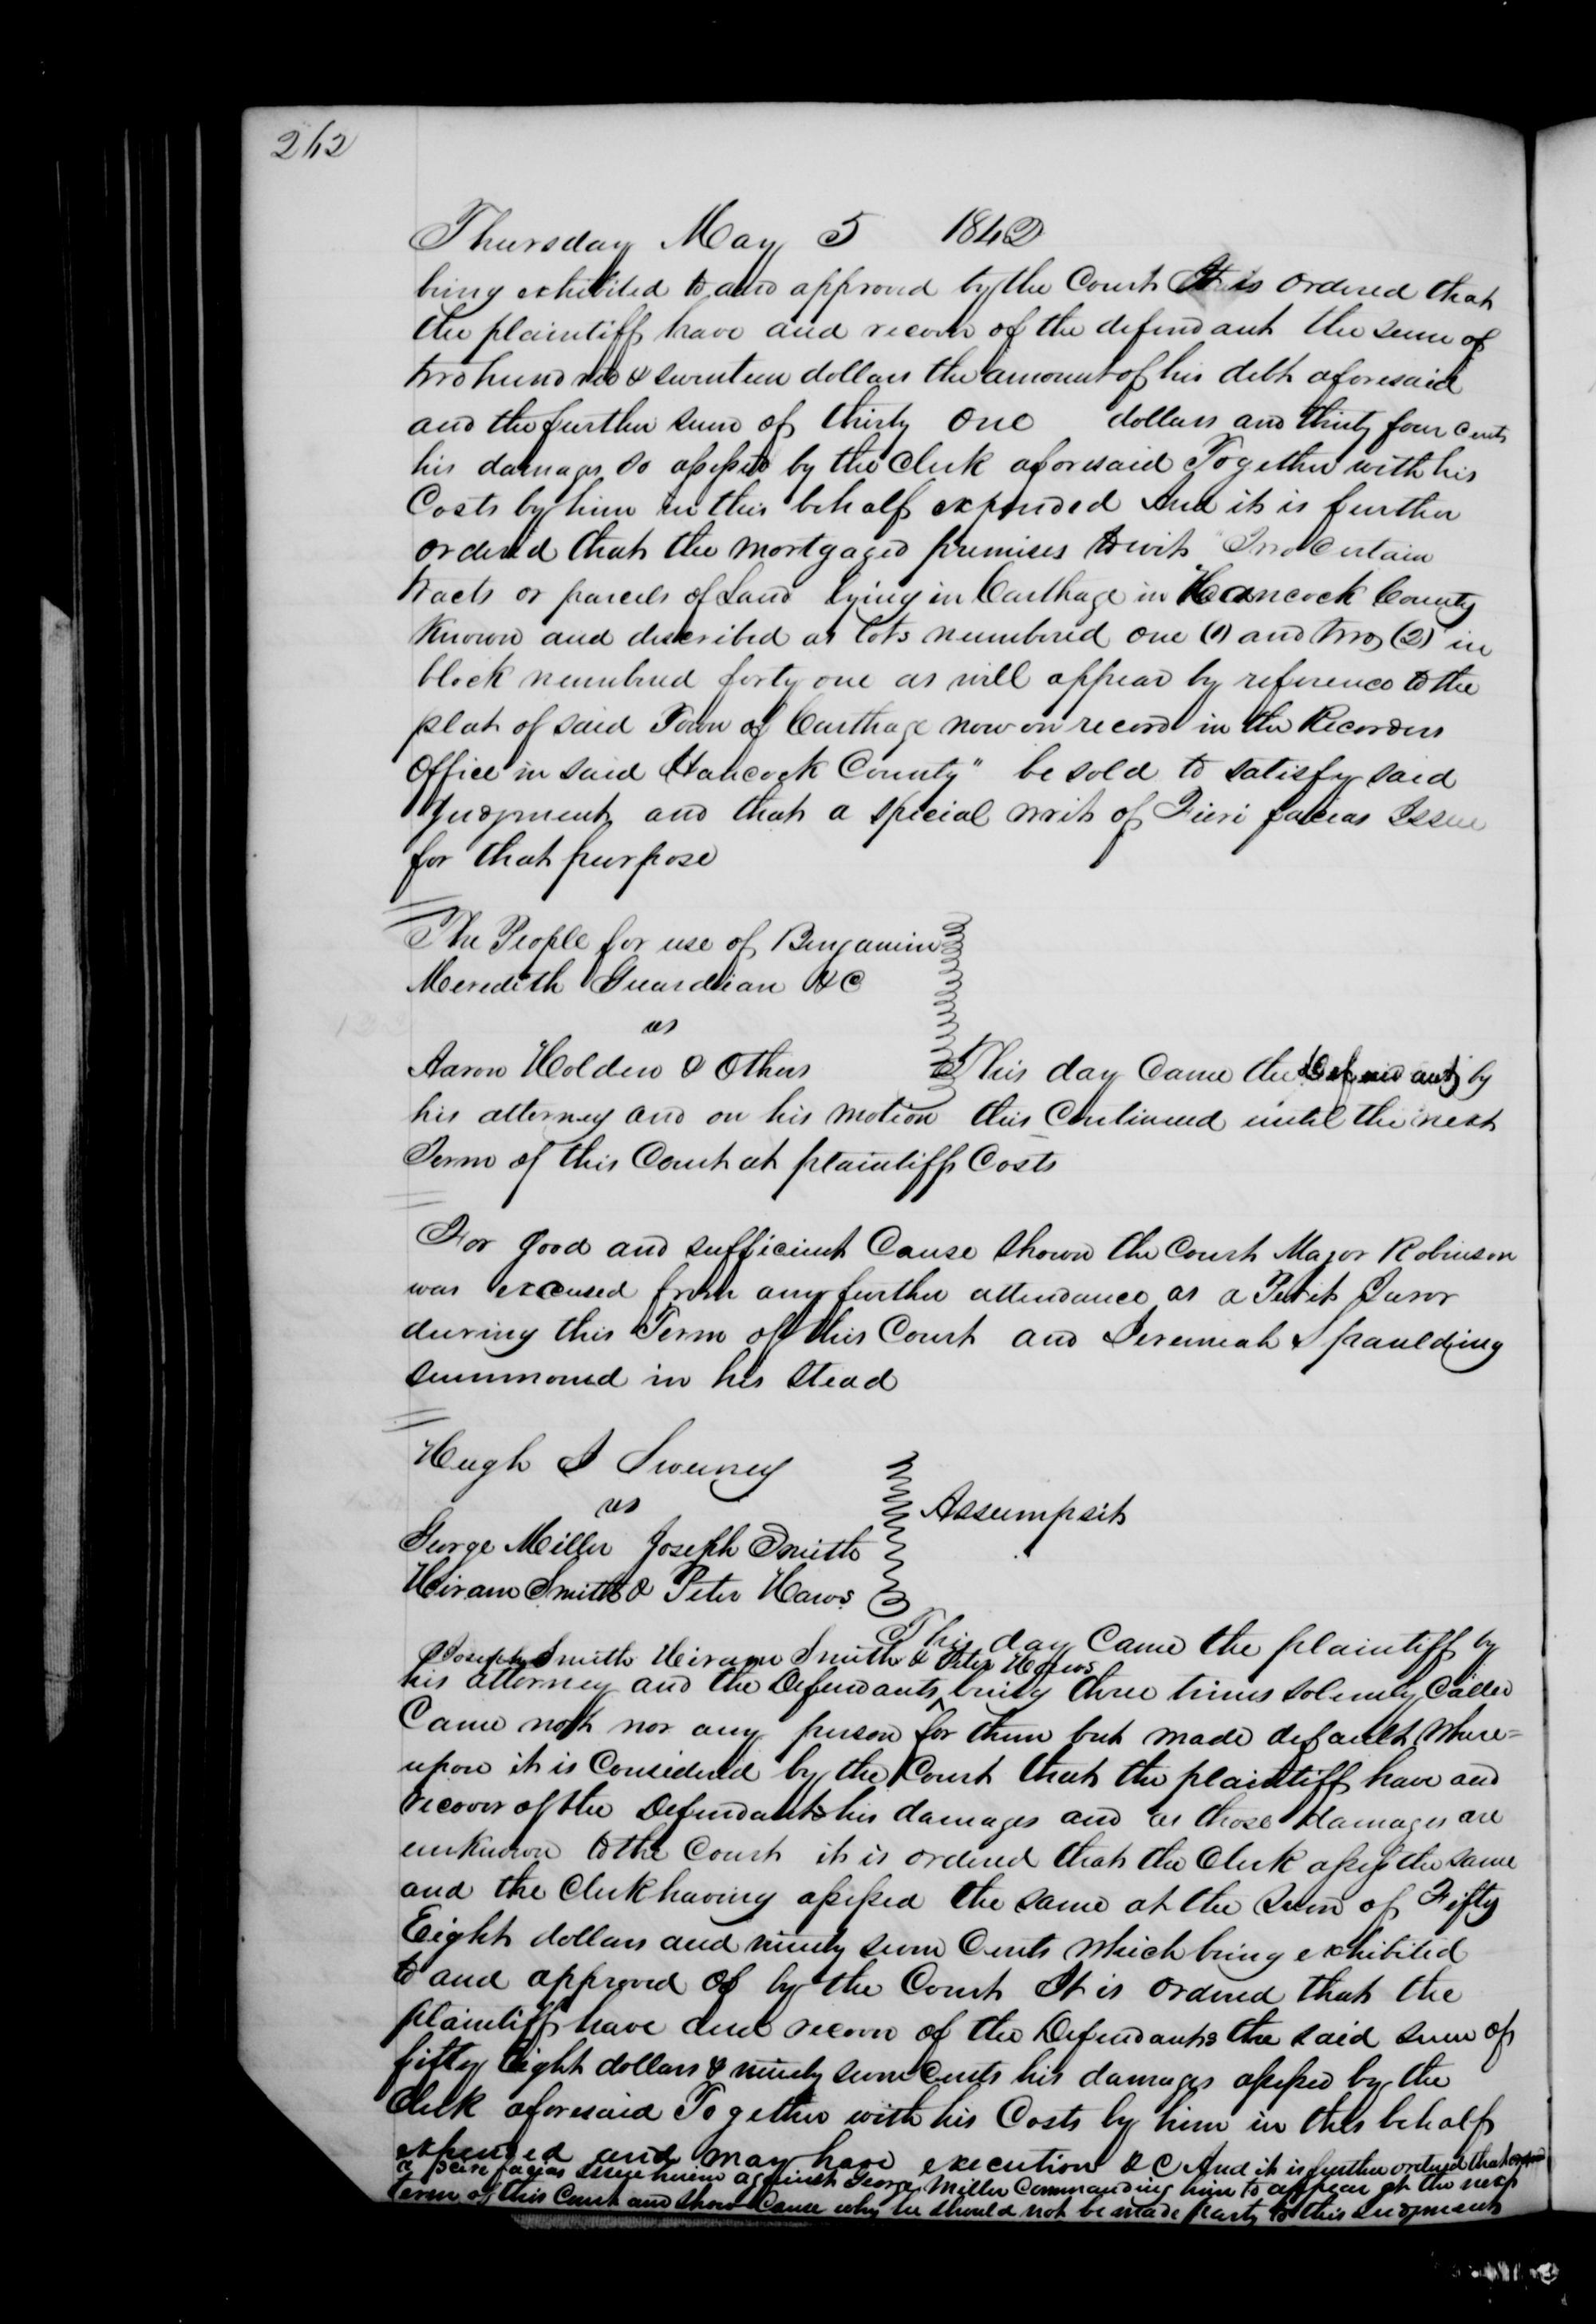 262
Thursday May 5 1842
being exhibited to and approved by the Court It is ordered that
the plaintiff have and recover of the defendant the sum of
two hundred & seventeen dollars the amount of his debt aforesaid
and the further sum of thirty one dollars and thirty four cents
his damages so assessed by the Clerk aforesaid Together with his
Costs by him in this behalf expended And it is further
ordered that the mortgaged premises towit "Two certain
tracts or parcels of Land lying in Carthage in Hancock County
Known and described as lots numbered one (1) and two (2) in
block numbered forty one as will appear by reference to the
plat of said Town of Carthage now on record in the Recorders
Office in said Hancock County" be sold to satisfy said
Judgment and that a special writ of Fieri facias Issue
for that purpose
The People for use of Benjamin
Meredith Guardian &C
vs
Aaron Holden & Others This day Came the Defendant by
his attorney and on his motion this Continued until the next
Term of this Court at plaintiffs Costs
For good and sufficient Cause shown the Court Major Robinson
was excused from any further attendance as a Petit Juror
during this Term of this Court and Jeremiah Spaulding
summoned in his stead
Hugh S Sweney
vs Assumpsit
George Miller Joseph Smith
Hiram Smith & Peter Haws
This day Came the plaintiff by
Joseph Smith Hiram Smith & Peter Haws
his attorney and the Defendants ^ being three times solemnly Called
Came not nor any person for them but made default Where=
upon it is Considered by the Court that the plaintiff have and
recover of the Defendants his damages and as those damages are
unknown to the Court it is ordered that the Clerk assess the same
and the Clerk having assessed the same at the sum of Fifty
Eight dollars and ninety seven Cents which being exhibited
to and approved of by the Court It is ordered that the
plaintiff have and recover of the Defendants the said sum of
fifty Eight dollars & ninety seven Cents his damages assessed by the
Clerk aforesaid Together with his Costs by him in this behalf
expended and may have execution &C And it is further ordered that
a scire facias Issue herein against George Miller Commanding him to appear at the next
term of this Court and show Cause why he should not be made party to this Judgment